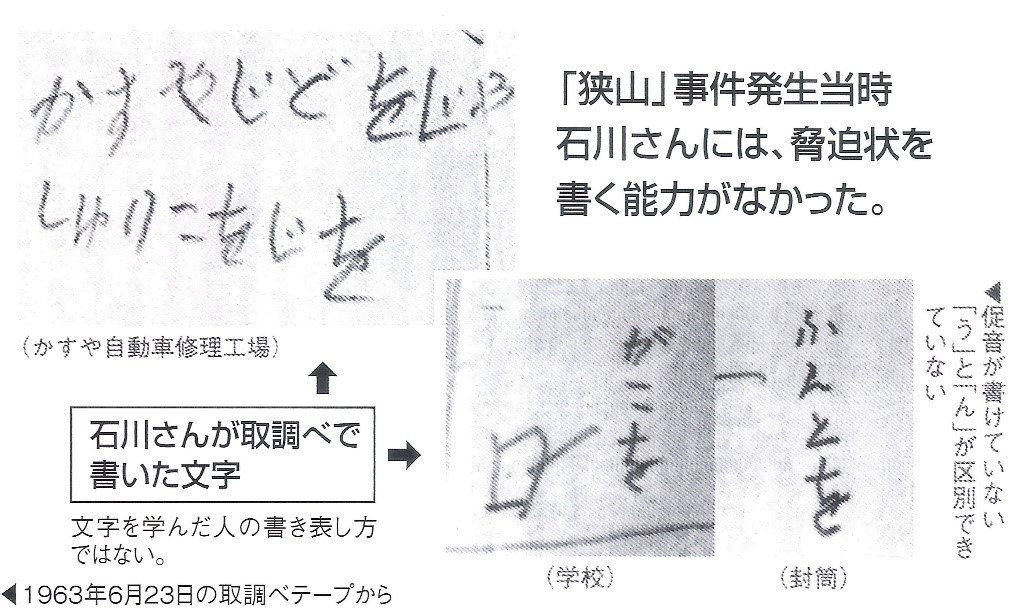 かすやじどをじや
しゆりこをじを
「狭山」事件発生当時
石川さんには、脅迫状を
書く能力がなかった。
(かすや自動車修理工場)
石川さんが取調べで
書いた文字
文字を学んだ人の書き表し方
ではない。
◀1963年6月23日の取調べテープから
がこを
(学校)
ふんとを
(封筒)
◀促音が書けていない
「う」と「ん」が区別でき
ていない